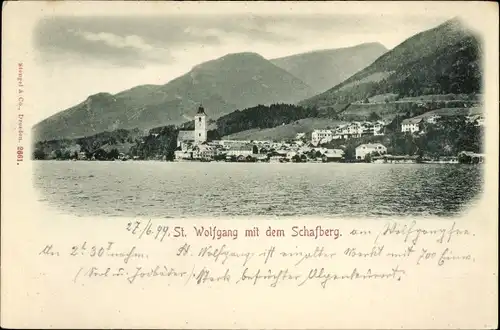 Stengel & Co., Dresden 2661.
27/6.99 St. Wolfgang mit dem Schafberg. am Wolfgangsee.
An 2.t 30T nachm. St. Wolfgang ist ein alter Markt mit 700 Einw.
(Sol u. Jodbäder) stark besuchter Alpenkurort.